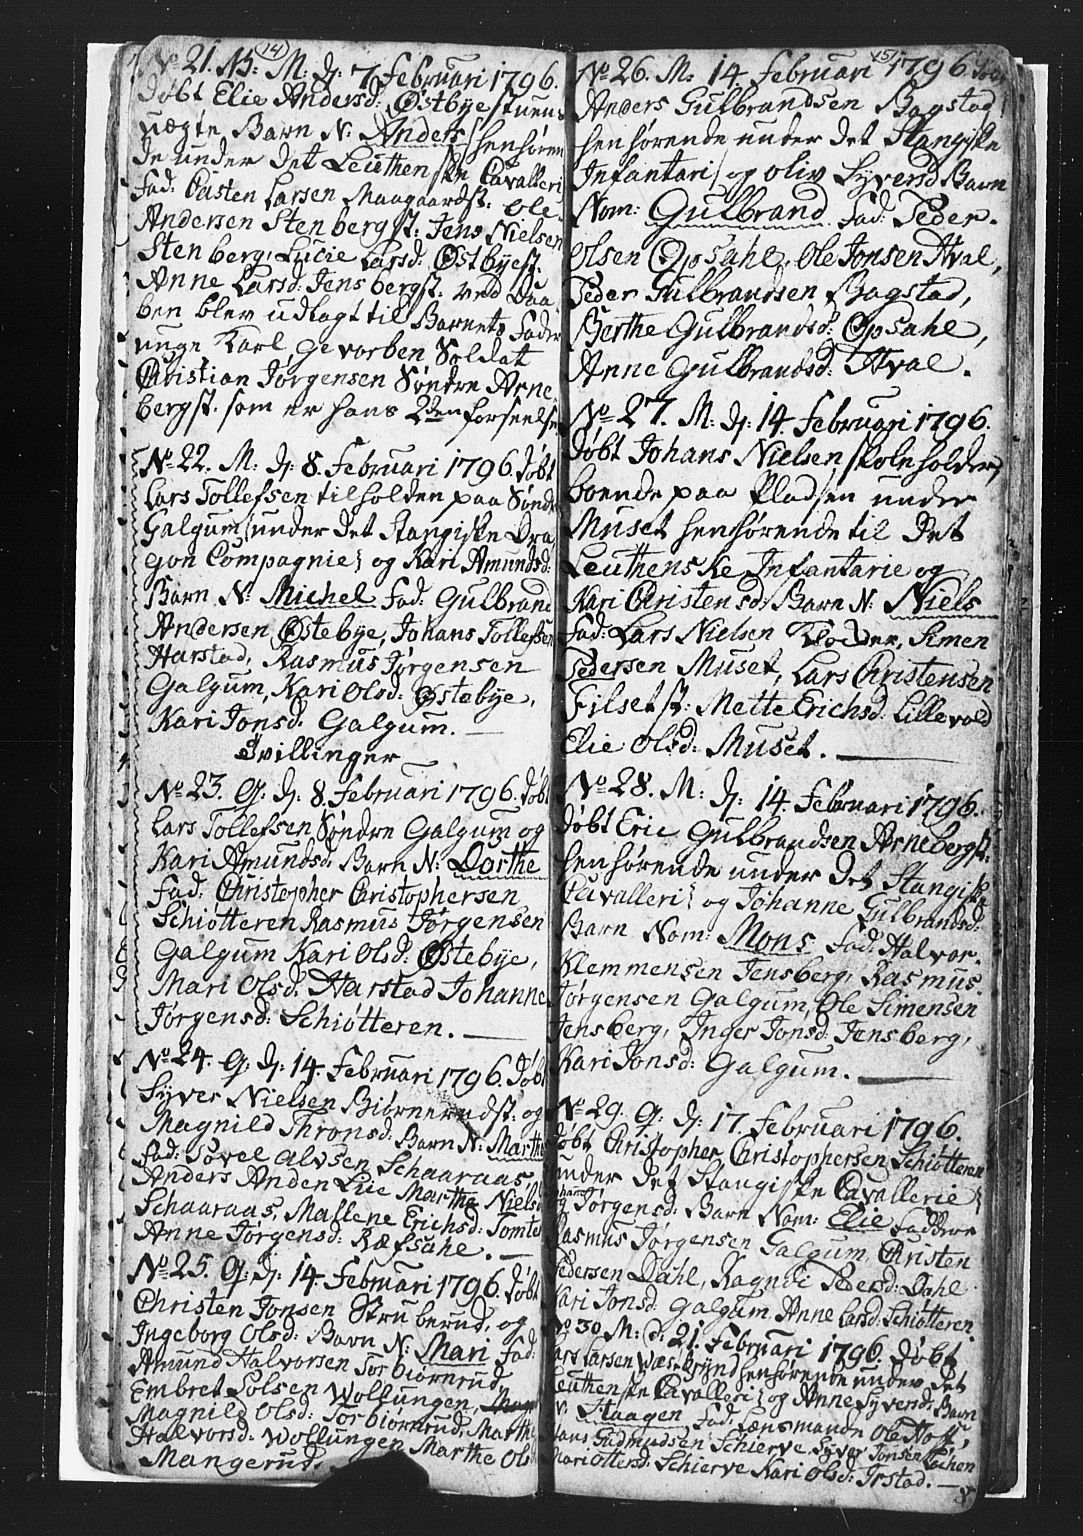 14
No 21. NB: M: d: 7 Februari 1796.
Døbt Elie Andersd: Østbye stuens
uægte Barn N: Anders / henhøren
de under det Leuthenske Cavalleri
fad: Casten Larsen Maagaardst: Ole
Andersen Stenbergst: Jens Nielsen
Stenberg, Lucie Larsd: Østbyest:
Anne Larsd: Jensbergst. ved Daa
ben blev udlagt til Barnets Fader
unge Karl, gevorben Soldat
Christian Jørgensen Søndre Arne
bergst. som er hans 2den forseelse
No 22. M: d: 8. Februari 1796. Døbt
Lars Tollefsen tilholden paa Søndr
Galgum / under det Stangiske Dra
gon Compagnie / og Kari Amundsd:
Barn N: Michel fad: Gulbrand
Andersen Østebye, Johans Tollefsen
Harstad, Rasmus Jørgensen
Galgum, Kari Olsd: Østebye,
Kari Jonsd: Galgum.
Tvillinger
No 23. Q: d: 8. Februari 1796. Døbt
Lars Tollefsen Søndre Galgum og
Kari Amundsd: Barn N: Dorthe
fad: Christopher Christophersen
Schiøtteren Rasmus Jørgensen
Galgum Kari Olsd: Østebye,
Mari Olsd: Harstad Johanne
Jørgensd: Schiøtteren.
No 24. Q: d: 14. Februari 1796. Døbt
Syver Nielsen Biørnerudst: og
Magnild Thronsd: Barn N: Marthe
fad: Povel Alvsen Schaaraas,
Anders Anden Lie Marthe Nielsd
Schaaraas, Mallene Erichsd: Tomte
Anne Jørgensd: Ræfsahle.
No 25. Q: d: 14. Februari 1796. Døbt
Christen Jonsen Struberud, og
Ingeborg Olsd: Barn N: Mari fad:
Amund Halvorsen Torbiørnrud,
Embret Polsen Wollungen,
Magnild Olsd: Torbiørnrud, Marthe
Halvorsd: Wollungen Marthe Olsd
Mangerud.
15
No 26. M: 14 Februari 1796. Døbt
Anders Gulbrandsen Bagstad
henhørende under det Stangiske
Infantari / og Oliv Syversd Barn
Nom: Gulbrand. fad: Peder
Olsen Opsahl, Ole Jonsen Hval,
Peder Gulbrandsen Bagstad,
Berthe Gulbrandsd: Opsahl,
Anne Gulbrandsd: Hval.
No 27. M: d: 14. Februari 1796.
Døbt Johans Nielsen skoleholder,
boende paa Pladsen under
Muset henhørende til Det
Leuthenske Infantarie og
Kari Christensd: Barn N: Niels
fad: Lars Nielsen Klocker, Simen
Pedersen Muset, Lars Christensen
Filset st: Mette Erichsd: Lillevold
Elie Olsd: Muset.
No 28. M: d: 14. Februari 1796.
Døbt Eric Gulbrandsen Arnebergst:
henhørende under det Stangiske
Cavalleri / og Johanne Gulbrandsd:
Barn Nom: Mons fad: Halvor
Klemmensen Jensberg, Rasmus
Jørgensen Galgum, Ole Simensen
Jensberg, Inger Jonsd: Jensberg,
Kari Jonsd: Galgum.
No 29. Q: d: 17. Februari 1796.
Døbt Christopher Christophersen Schiøtteren
under det Stangiske Cavallerie /
og Johane Jørgensd: Barn Nom: Elie Faddere
Rasmus Jørgensen Galgum, Christen
Pedersen Dahl, Ragnili Pedersd: Dahl.
Kari Jonsd: Galgum Anne Larsd: Schiøtteren.
No 30 M: d: 21. Februari 1796 Døbt
Lars Larsen henhørende under det
Leuthenske Cavalleri / og Anne Syversd: Barn
N: Haagen fad: Lænsmande Ole Hoff,
Hans Gudmundsen Schierve Syver Jonsen Løchen
Mari Ottersd: Schierve Kari Olsd: Irstad.